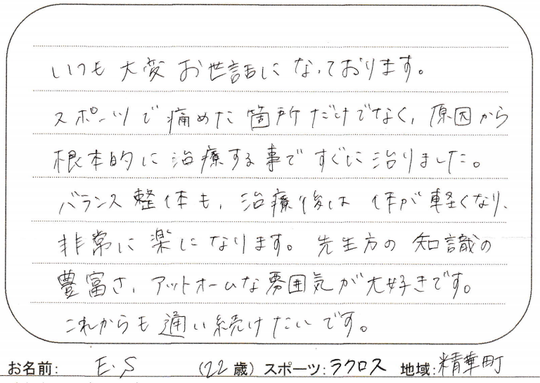 いつも大変お世話になっております。
スポーツで痛めた箇所だけでなく、原因から
根本的に治療する事ですぐに治りました。
バランス整体も、治療後は体が軽くなり、
非常に楽になります。先生方の知識の
豊富さ、アットホームな雰囲気が大好きです。
これからも通い続けたいです。
お名前: E.S (22歳) スポーツ:ラクロス 地域:精華町